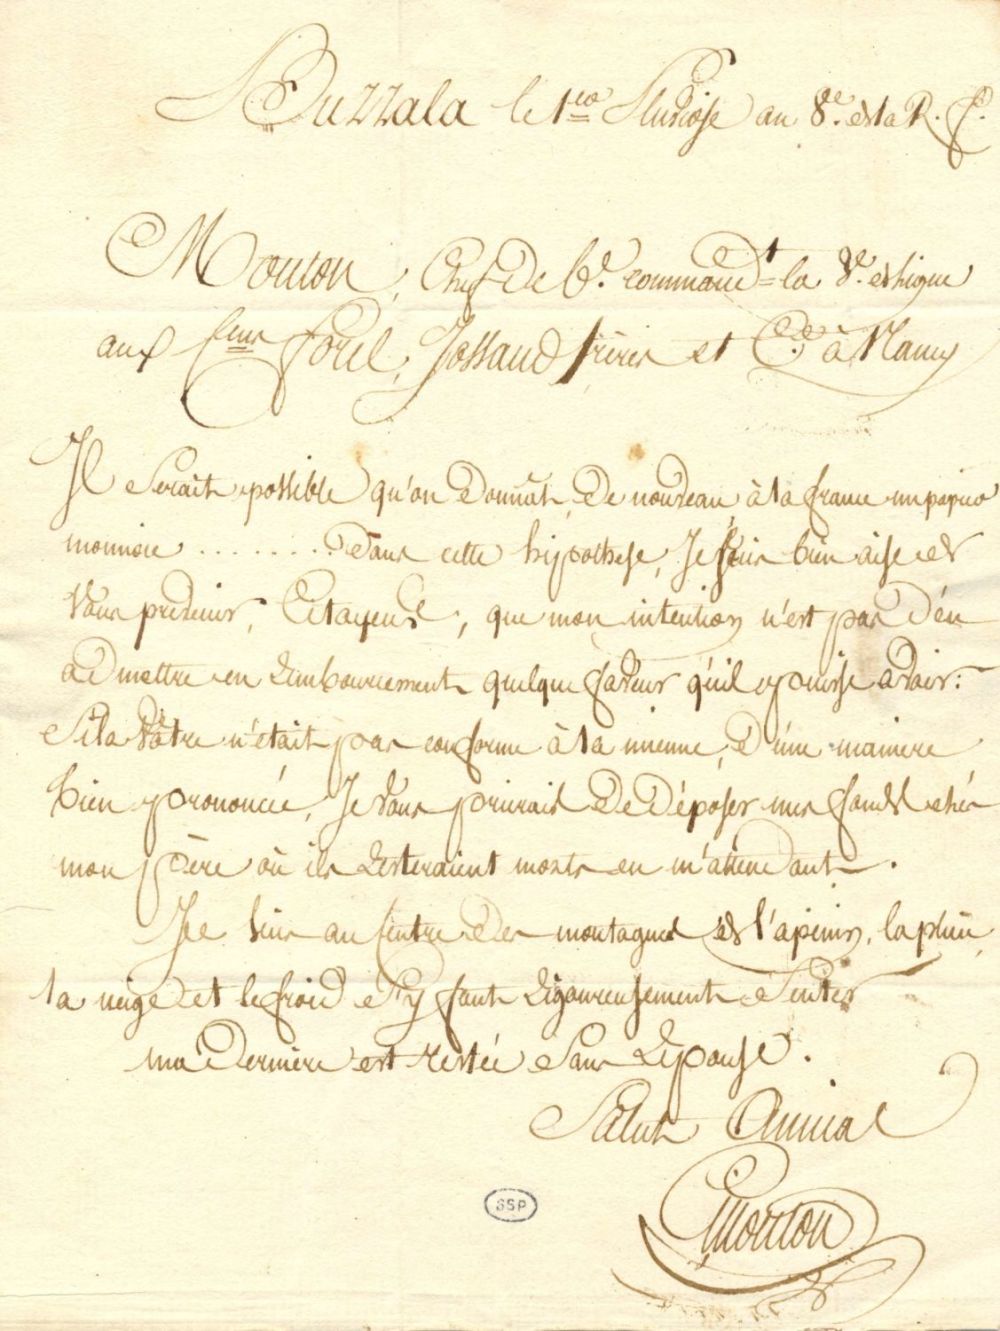 Buzzala le 1er Pluviose an 8e. de la R. f.
Mouton, Chef de Be. commandt la 8e. de ligne
aux Cens forel, Jossaud frères et Cie. à Nancy
Il Serait possible qu'on donnat, de nouveau, à la france un papier
monnoie ........ dans cette hipothese, Je Suis bien aise de
Vous prevenir, Citoyens, que mon intention n'est pas d'en
admettre en Remboursement quelque faveur qu'il puisse avoir:
Si la Vôtre n'était pas conforme à la mienne, d'une maniere
bien prononcée, Je Vous prierais de déposer mes fonds chés
mon père où ils Resteraient morts en m'attendant.
Ici Sur au Centre des montagnes de l'apenin, la pluie,
la neige et le froid s'y font Rigoureusement Sentir
ma derniere est restée Sans Réponse.
Salut Amical
Mouton
SSP